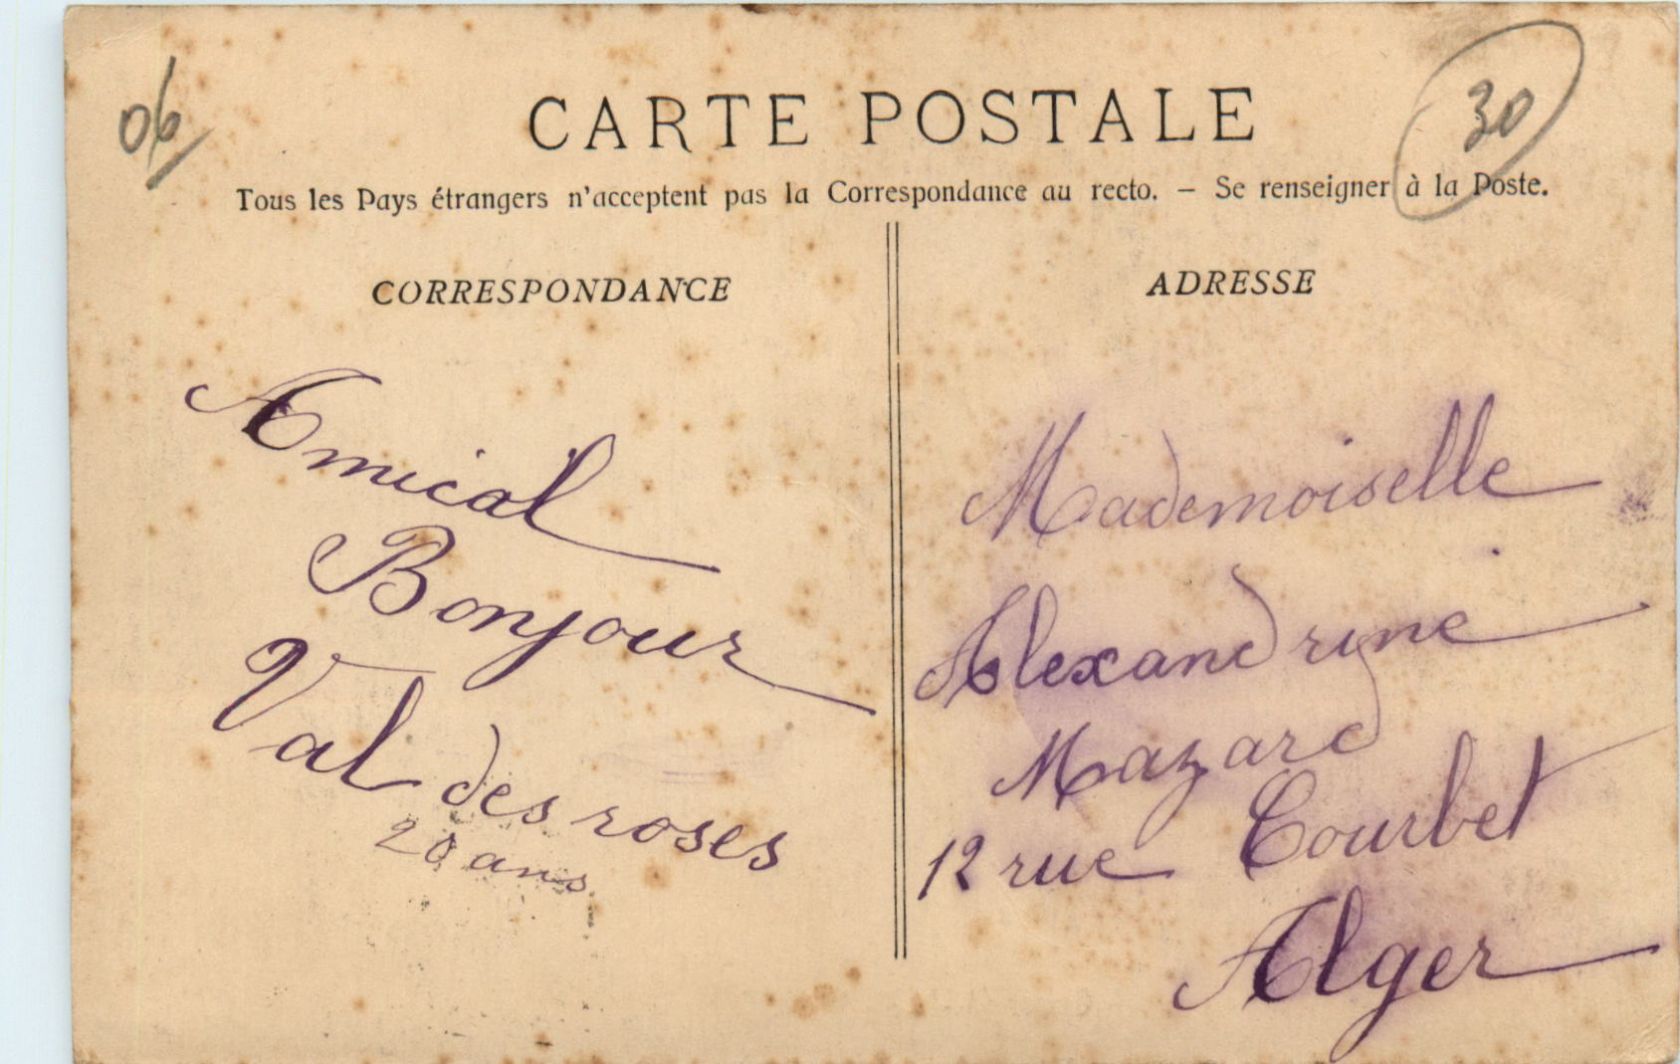 06
30
CARTE POSTALE
Tous les Pays étrangers n'acceptent pas la Correspondance au recto. – Se renseigner à la Poste.
CORRESPONDANCE
Amical
Bonjour
Val des roses
20 ans
ADRESSE
Mademoiselle
Alexandrine
Mazard
12 rue Courbet
Alger